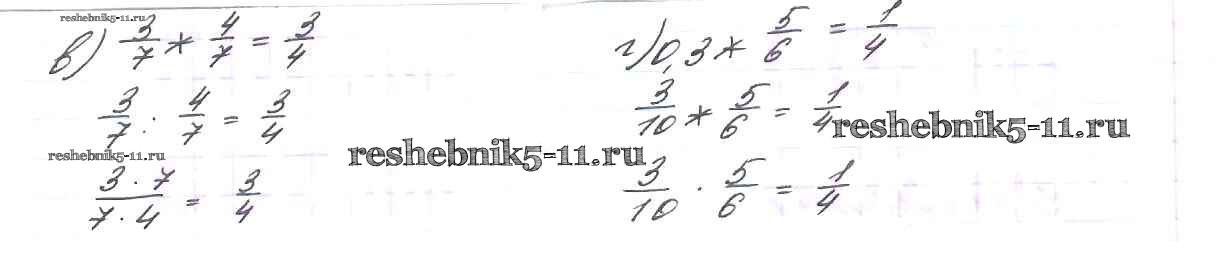 reshebnik5-11.ru
в) 3/7 * 4/7 = 3/4
3/7 : 4/7 = 3/4
reshebnik5-11.ru
3·7/7·4 = 3/4
reshebnik5-11.ru
г) 0,3 * 5/6 = 1/4
3/10 * 5/6 = 1/4
reshebnik5-11.ru
3/10 · 5/6 = 1/4